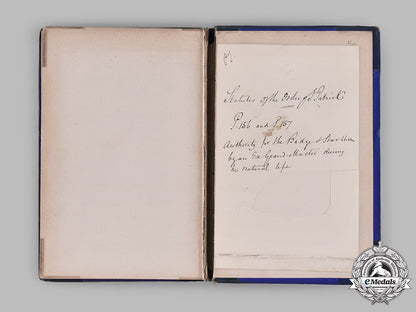 Statutes of the Order of St Patrick
P.156 and P.157
Authority for the Badge & Star
by an Ex Grand-Master during
natural life
eMedals